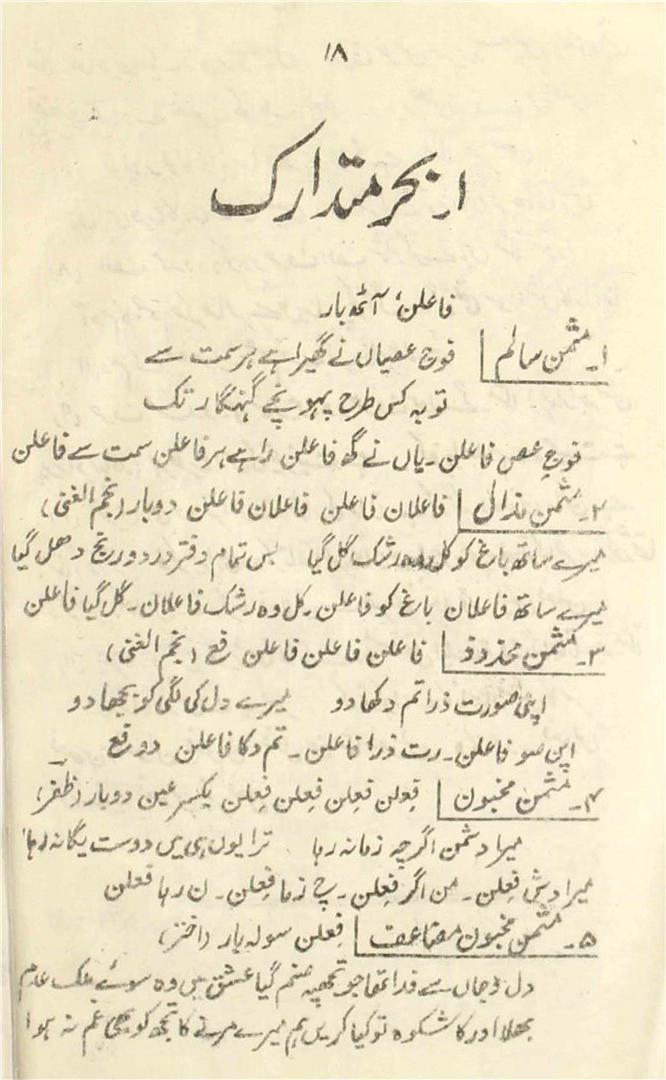 ۱۸
۱۔ بحر متدارک
فاعلن، آٹھ بار
۱۔ مثمن سالم فوجِ عصیاں نے گھیرا ہے ہر سمت سے
توبہ کس طرح پہونچے گنہگار تک
فوجِ عص فاعلن ۔ یاں نے گھ فاعلن را ہے ہر فاعلن سمت سے فاعلن
۲۔ مثمن مذال فاعلان فاعلن فاعلان فاعلن دوبار (نجم الغنی)
میرے ساتھ باغ کو کل وہ رشک گل گیا بس تمام دفتر درد و رنج دھل گیا
میرے ساتھ فاعلان باغ کو فاعلن ۔ کل وہ رشک فاعلان ۔ گل گیا فاعلن
۳۔ مثمن محذوذ فاعلن فاعلن فاعلن فع (نجم الغنی)
اپنی صورت ذرا تم دکھا دو میرے دل کی لگی کو بجھا دو
اپن صو فاعلن ۔ رت ذرا فاعلن ۔ تم دکا فاعلن دو فع
۴۔ مثمن مخبون فَعِلن فَعِلن فَعِلن فَعِلن یکسر عین دوبار (ظفر)
میرا دشمن اگرچہ زمانہ رہا ترا یوں ہی میں دوست یگانہ رہا
میرا دش فَعِلن ۔ من اگر فَعِلن ۔ چ زما فَعِلن ۔ ن رہا فعلن
۵۔ مثمن مخبون مضاعف فَعِلن سولہ بار (اختر)
دل و جاں سے فدا تھا جو تجھپہ صنم گیا عشق میں وہ سوئے ملک عدم
بھلا اور کا شکوہ تو کیا کریں ہم میرے مرنے کا تجھ کو بھی غم نہ ہوا